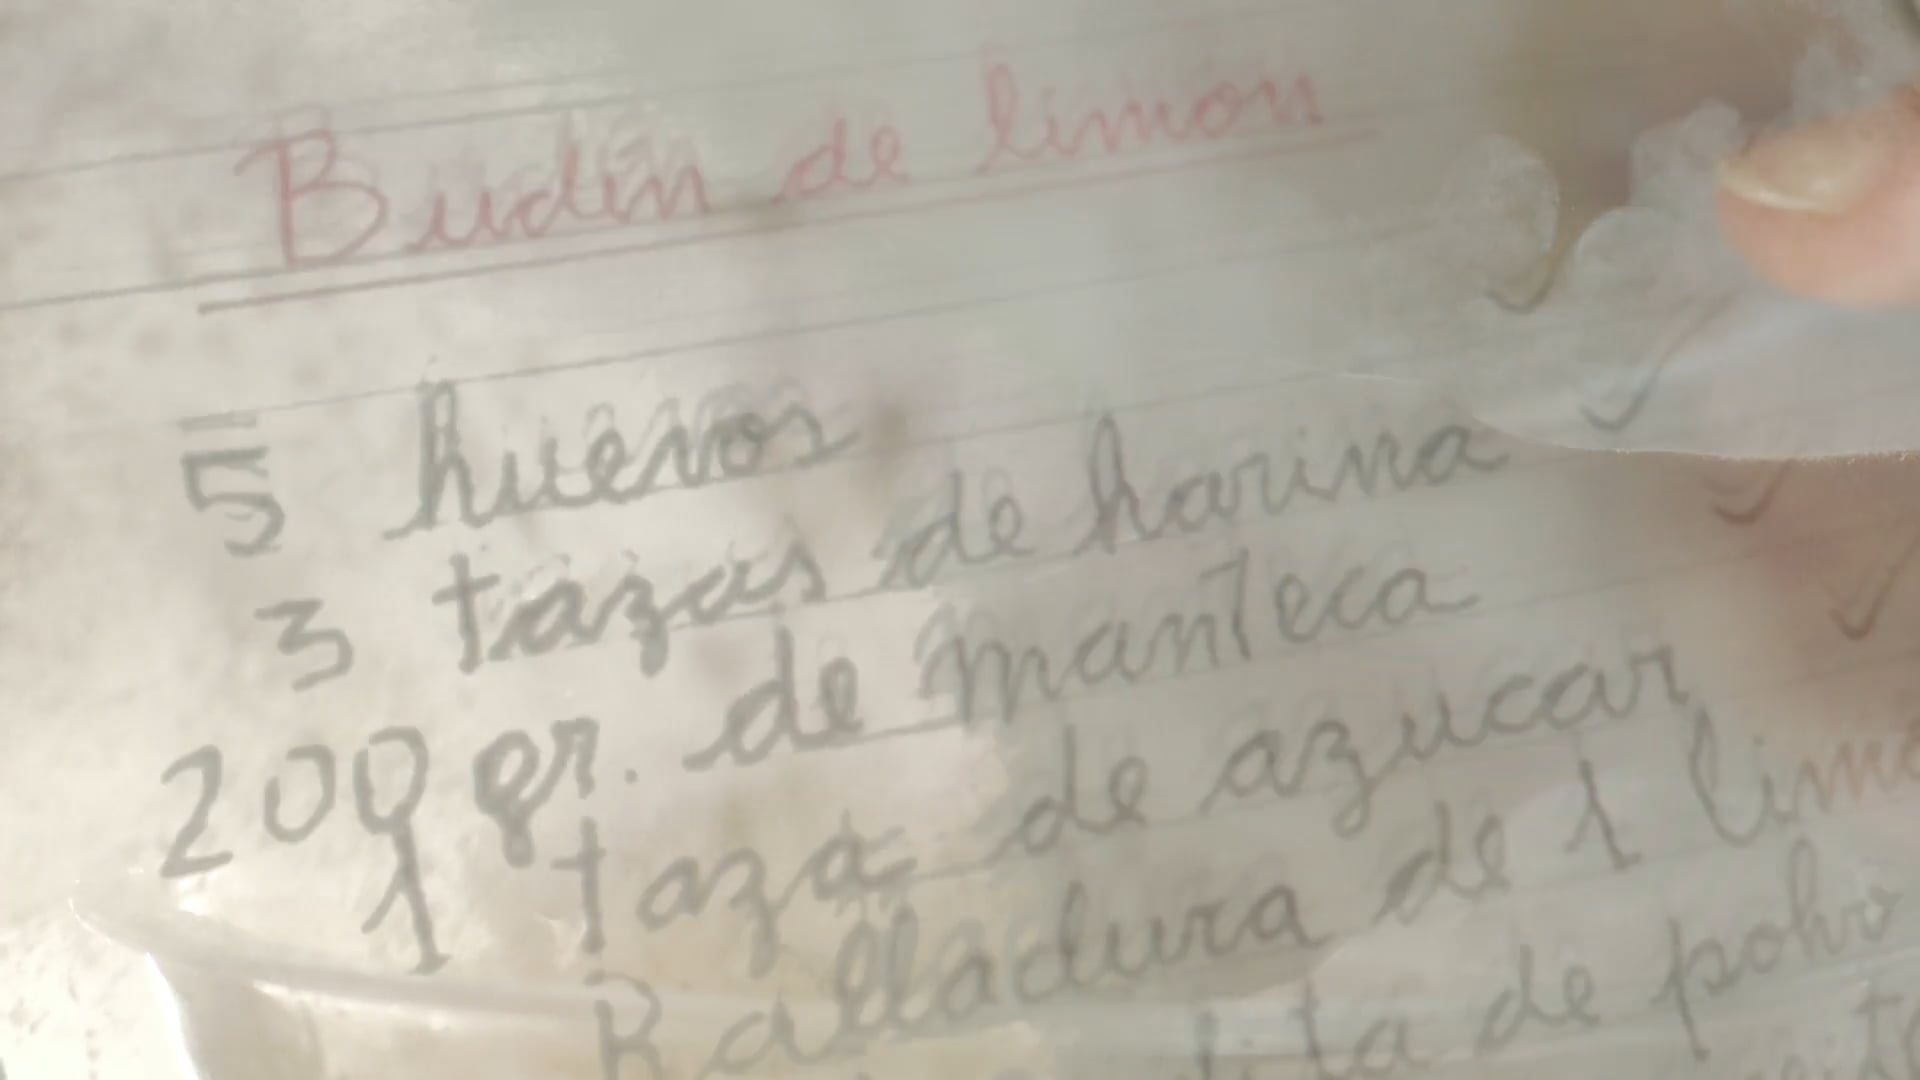 Budin de limon
5 huevos
3 tazas de harina
200 gr. de manteca
1 taza de azucar
Ralladura de 1
de polvo